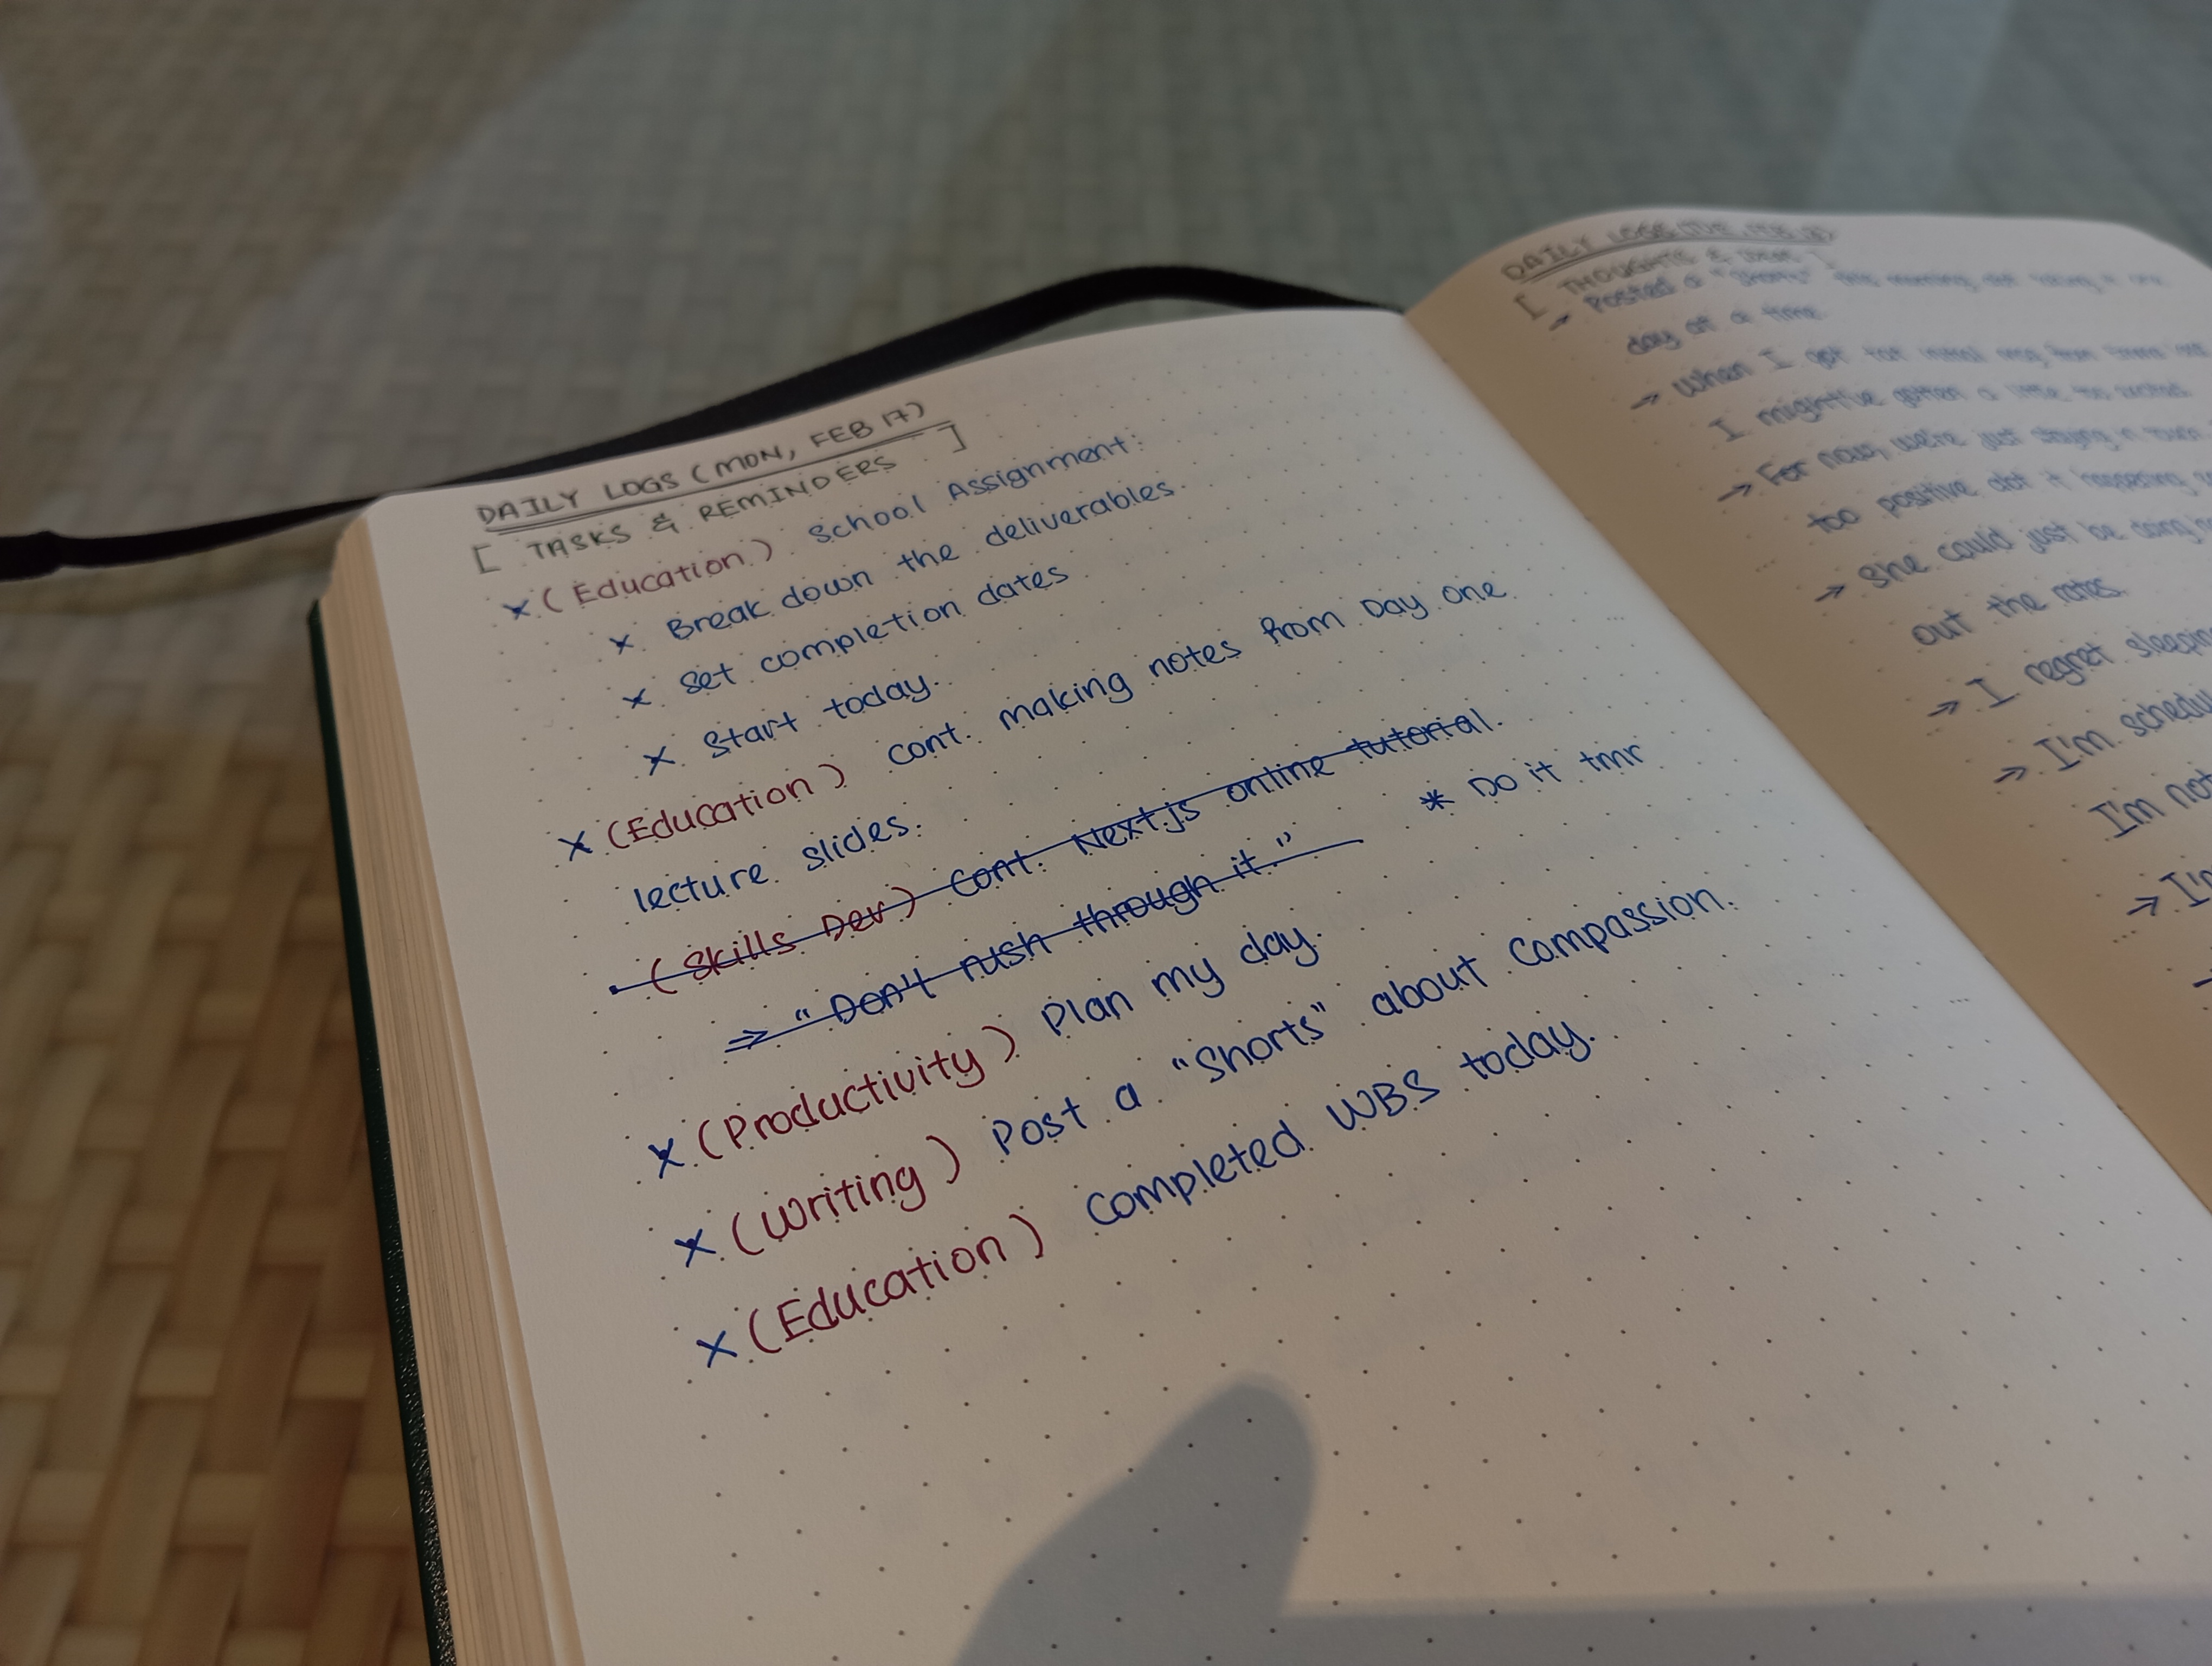 DAILY LOGS (MON, FEB 17)
[ TASKS & REMINDERS ]
× (Education) School Assignment:
× Break down the deliverables
× Set completion dates
× Start today.
× (Education) Cont. making notes from Day One
lecture slides.
• (Skills Dev) Cont. Next.js online tutorial.
⇒ "Don't rush through it." * Do it tmr
× (Productivity) Plan my day.
× (Writing) Post a "Shorts" about Compassion.
× (Education) Completed WBS today.
DAILY LOGS
[ THOUGHTS &
→ Posted a "Shorts" this morning,
day at a time.
→ When I got
I might've gotten a little too excited.
→ For now, we're just staying in touch
too positive abt it happening,
→ She could just be doing
out the notes.
→ I regret sleeping
→ I'm
I'm not
→